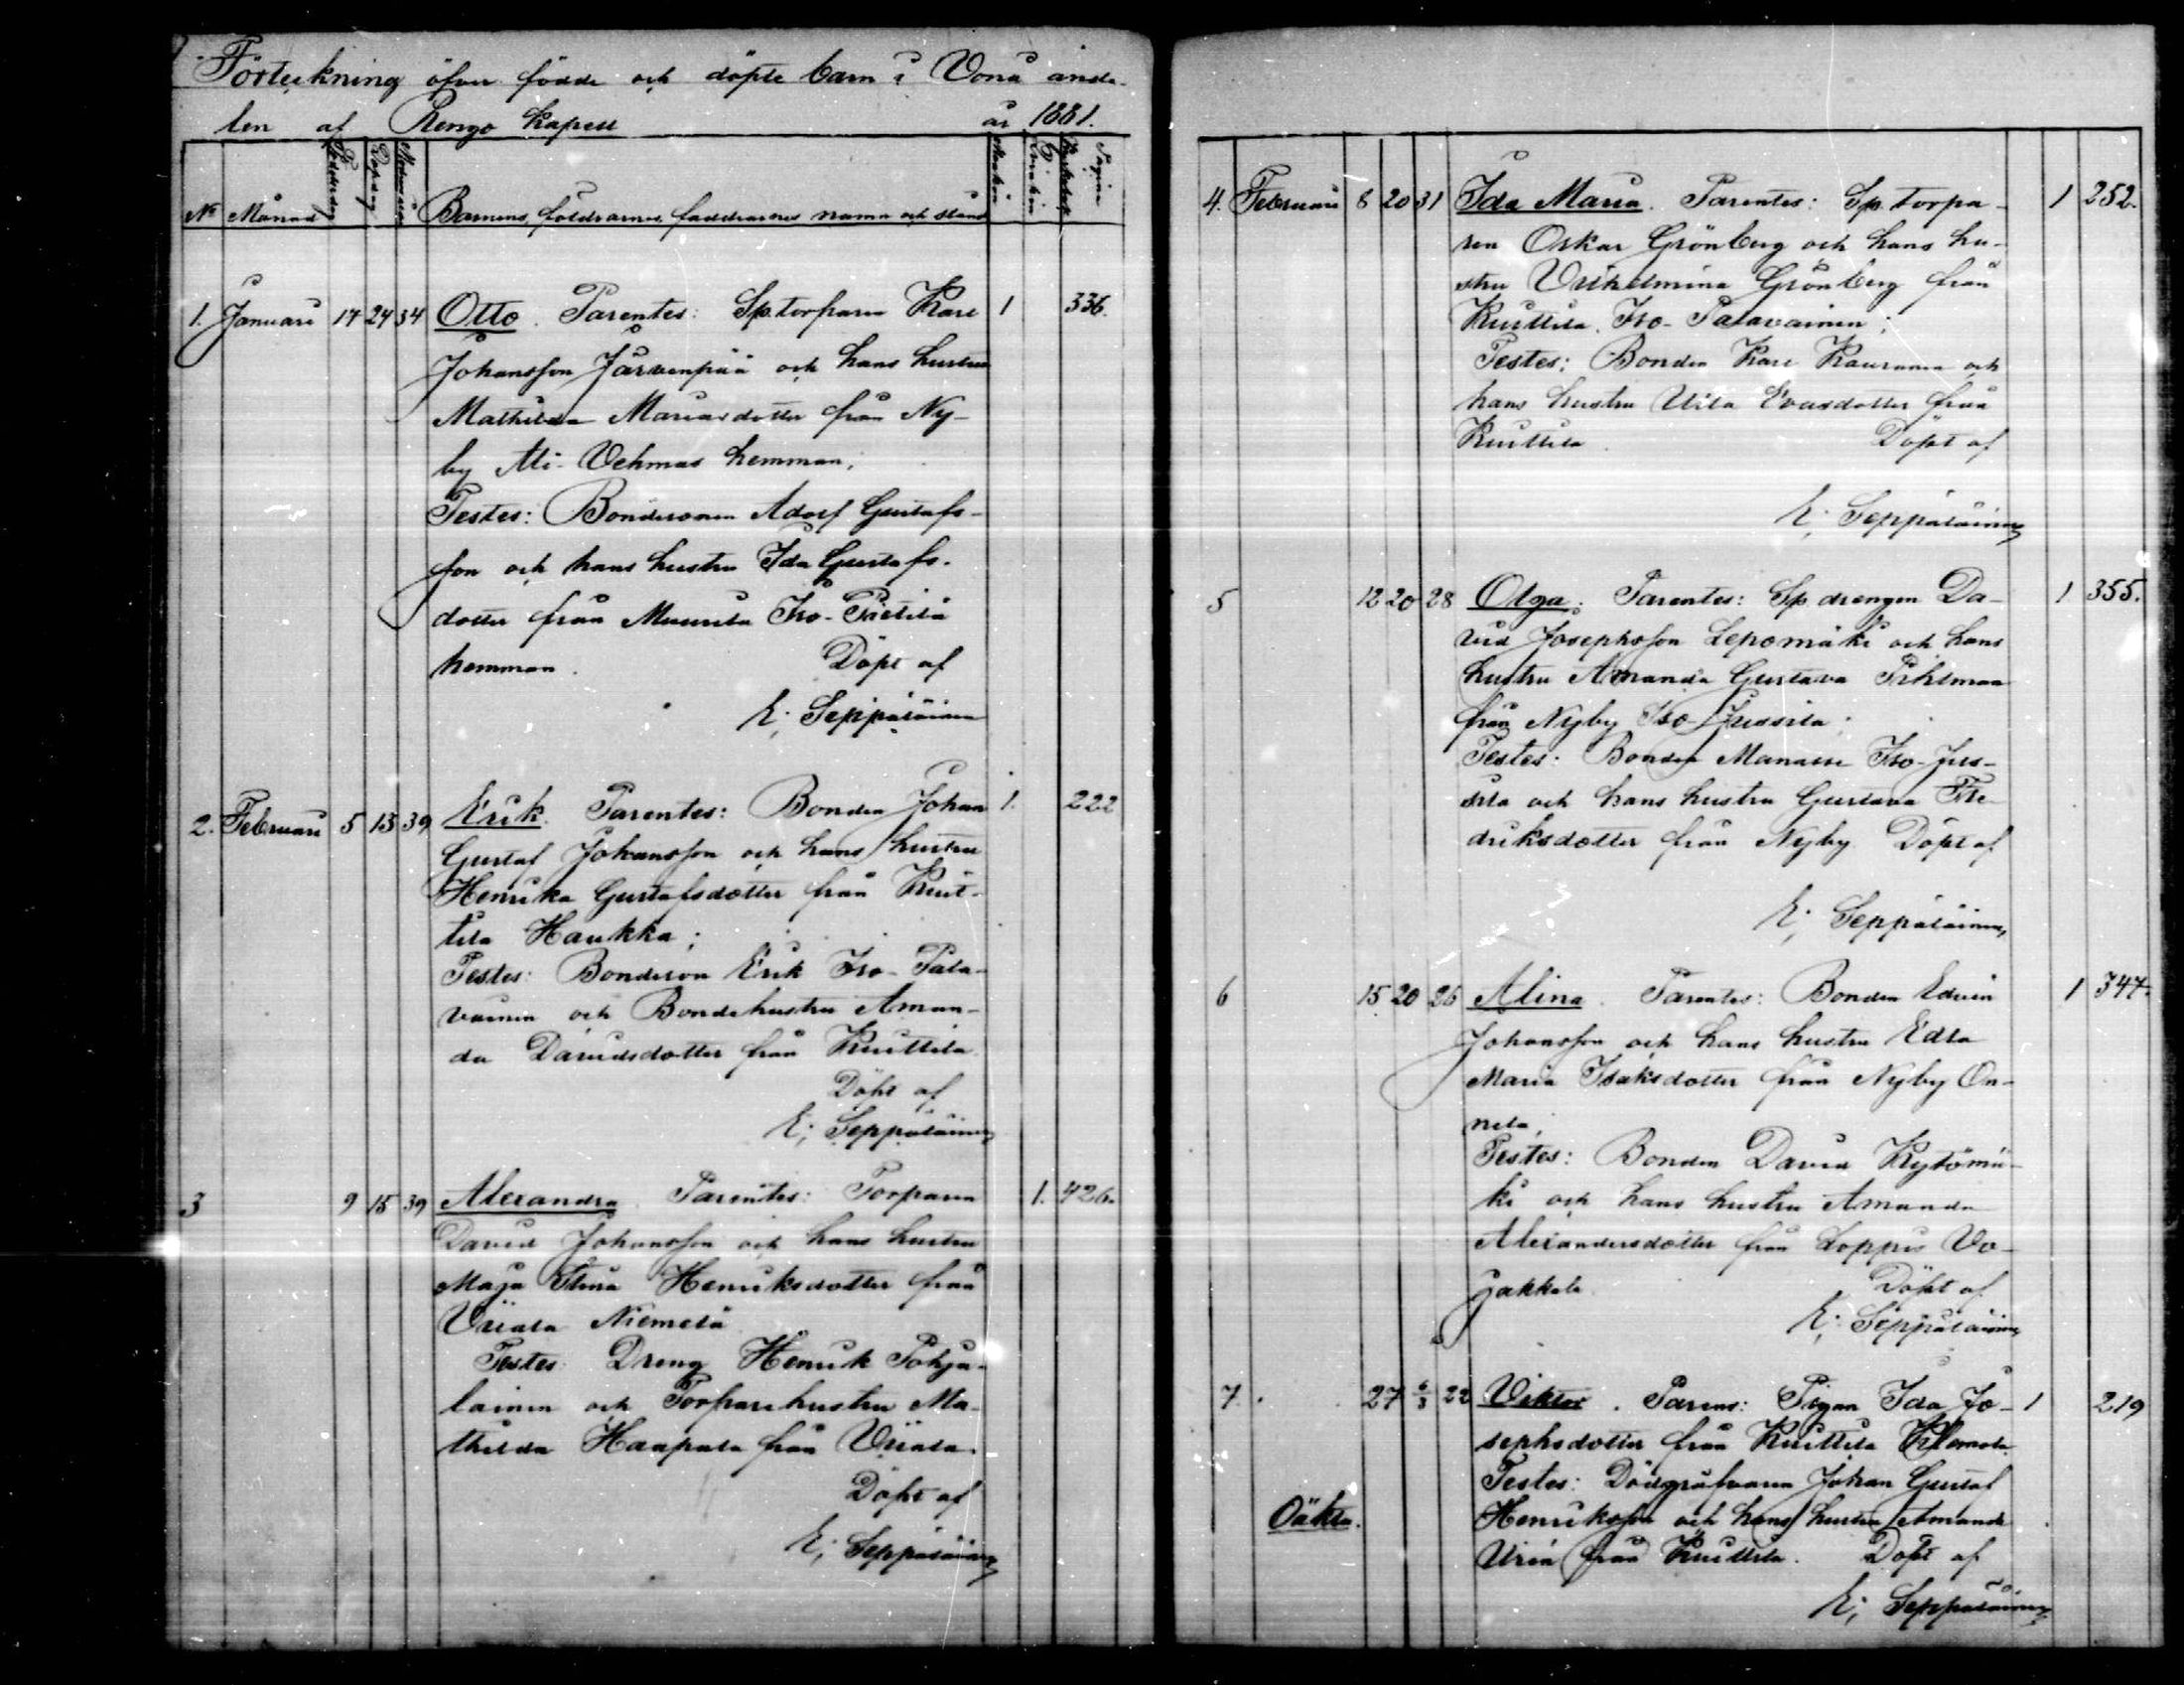 Förteckning öfver födde och döpte barn i Vonå ande-
len af Rengo Kapell år 1881.
No Månad Födelsedag Dopdag Barnens, föräldrarnes, faddrarnes namn och stånd Mankön Qvinkön Pagina
1. Januari 17 24 34 Otto. Parentes: Sp. torparen Karl 1 336.
Johansson Järvenpää och hans hustru
Mathilda Mariasdotter från Ny-
by Ali-Vehmas hemman;
Testes: Bondesonen Adolf Gustafs-
son och hans hustru Ida Gustafs-
dotter från Muurila Iso-Pietilä
hemman. Döpt af
K; Seppäläinen
2. Februari 5 13 39 Erik. Parentes: Bonden Johan 1. 222
Gustaf Johansson och hans hustru
Henrika Gustafsdotter från Kuit-
tila Haukka;
Testes: Bondeson Erik Iso-Pala-
vainen och Bondehustru Aman-
da Davidsdotter från Kuittila
Döpt af
K; Seppäläinen
3 9 15 39 Alexandra Parentes: Torparen 1. 426.
David Johansson och hans hustru
Maja Stina Henriksdotter från
Uriala Niemelä
Testes: Dreng Henrik Pohja-
lainen och Torparehustru Ma-
thilda Haapala från Uriala.
Döpt af
K; Seppäläinen
4. Februari 8 20 31 Ida Maria. Parentes: Sp. torpa- 1 252.
ren Oskar Grönberg och hans hu-
stru Vilhelmina Grönberg från
Kuittila Iso-Palavainen;
Testes: Bonden Karl Kauranen och
hans hustru Ulla Evasdotter från
Kuittila. Döpt af
K; Seppäläinen
5 12 20 28 Olga. Parentes: Sp. drengen Da- 1 355.
vid Josephsson Lepomäki och hans
hustru Amanda Gustava Pihlman
från Nyby Iso-Jussila;
Testes: Bonden Manasse Iso-Jus-
sila och hans hustru Gustava Fre-
driksdotter från Nyby Döpt af
K; Seppäläinen
6 15 20 26 Alina. Parentes: Bonden Edvin 1 347.
Johansson och hans hustru Edla
Maria Isaksdotter från Nyby On-
nela;
Testes: Bonden David Kytömä-
ki och hans hustru Amanda
Alexandersdotter från Loppis Vo-
jakkala Döpt af
K; Seppäläinen
7. 27 6/3 22 Viktor. Parens: Pigan Ida Jo- 1 219
sephsdotter från Kuittila Klemola
Testes: Dödgräfvaren Johan Gustaf
Oäkta. Henriksson och hans hustru Amanda
från Kuittila. Döpt af
K; Seppäläinen